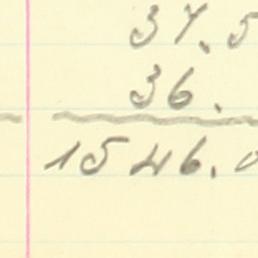 37.5
36.
1546.0